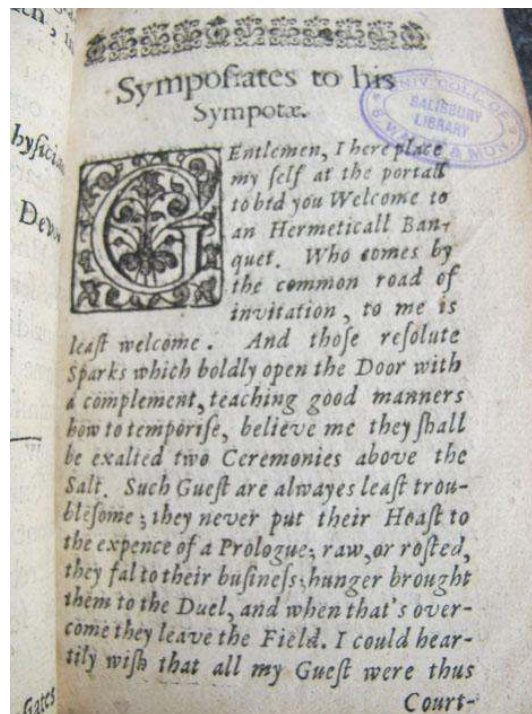 Sympoſiates to his
Sympotæ.
GEntlemen, I here place
my ſelf at the portall
to bid you Welcome to
an Hermeticall Ban-
quet. Who comes by
the common road of
invitation, to me is
leaſt welcome. And thoſe reſolute
Sparks which boldly open the Door with
a complement, teaching good manners
how to temporiſe, believe me they ſhall
be exalted two Ceremonies above the
Salt. Such Gueſt are alwayes leaſt trou-
bleſome; they never put their Hoaſt to
the expence of a Prologue; raw, or roſted,
they fal to their buſineſs; hunger brought
them to the Duel, and when that's over-
come they leave the Field. I could hear-
tily wiſh that all my Gueſt were thus
Court-
UNIV COLL OF S WALES & MON
SALISBURY
LIBRARY
hyſician
Gates